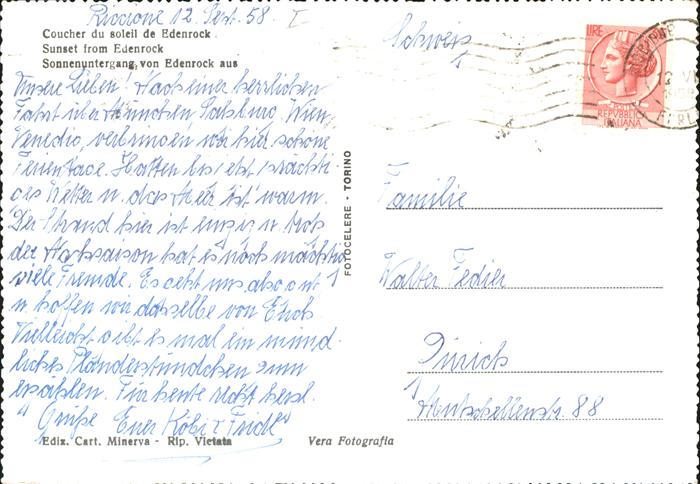 Riccione 12. Sept. 58
Coucher du soleil de Edenrock
Sunset from Edenrock
Sonnenuntergang von Edenrock aus
Unsere Lieben! Nach einer herrlichen
Fahrt über München Salzburg, Wien,
Venedig, verbringen wir hier schöne
Ferientage. Hatten bis jetzt prächti-
ges Wetter u. das Meer ist warm.
Der Strand hier ist einzig u. trotz
der Nachsaison hat es noch mächtig
viele Fremde. Es geht uns also gut
u. hoffen wir dasselbe von Euch
Vielleicht gibt es mal ein münd-
liches Plauderstündchen zum
erzählen. Für heute recht herzl.
Grüße Eure Köbi & Friedl
Ediz. Cart. Minerva - Rip. Vietata
Vera Fotografia
FOTOCELERE - TORINO
Schweiz
LIRE
POSTE
REPVBBLICA
ITALIANA
Familie
Walter Fedier
Zürich
Mutschellenstr. 88